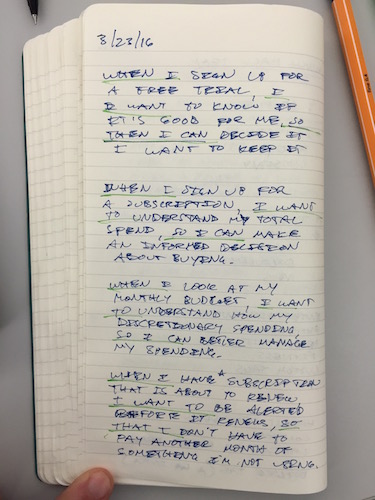 3/23/16
WHEN I SIGN UP FOR
A FREE TRIAL, I
I WANT TO KNOW IF
IT'S GOOD FOR ME, SO
THEN I CAN DECIDE IF
I WANT TO KEEP IT
WHEN I SIGN UP FOR
A SUBSCRIPTION, I WANT
TO UNDERSTAND MY TOTAL
SPEND, SO I CAN MAKE
AN INFORMED DECISION
ABOUT BUYING.
WHEN I LOOK AT MY
MONTHLY BUDGET, I WANT
TO UNDERSTAND HOW MY
DISCRETIONARY SPENDING,
SO I CAN BETTER MANAGE
MY SPENDING.
WHEN I HAVE A SUBSCRIPTION
THAT IS ABOUT TO RENEW
I WANT TO BE ALERTED
BEFORE IT RENEWS, SO
THAT I DON'T HAVE TO
PAY ANOTHER MONTH OF
SOMETHING I'M NOT USING.